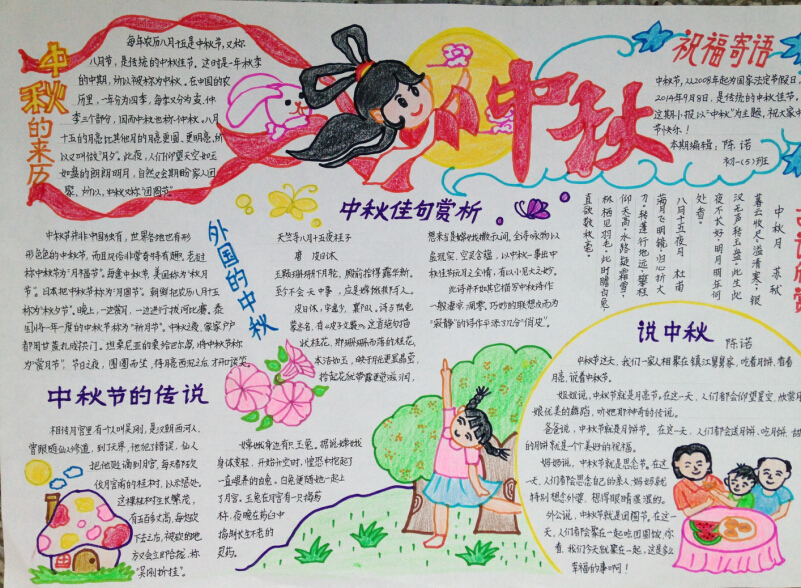 中秋的来历
每年农历八月十五是中秋节,又称
八月节,是传统的中秋佳节。这时是一年秋季
的中期,所以被称为中秋。在中国的农
历里,一年分为四季,每季又分为孟、仲、
季三个部分,因而中秋也称仲秋。八月
十五的月亮比其他月的月亮更圆,更明亮,所
以又叫做“月夕”。此夜,人们仰望天空如玉
如盘的朗朗明月,自然会期盼家人团
聚,所以,中秋又称“团圆节”。
中秋
祝福寄语
中秋节,从2008年起为国家法定节假日,
2014年9月8日,是传统的中秋佳节。
这期小报以“中秋”为主题,祝大家中
节快乐!
本期编辑:陈诺
初一(5)班
外国的中秋
中秋节并非中国独有,世界各地也有形
形色色的中秋节,而且风俗非常奇特有趣。
称中秋节为“月福节”。每逢中秋节,全国称为“秋月
节”。日本把中秋节称为“月圆节”。朝鲜把农历八月十五
称为“秋夕节”。晚上,一边赏月,一边进行拔河比赛。泰
国将一年一度的中秋节称为“祈月节”。中秋之夜,家家户户
都用甘蔗扎成拱门。
为“赏月节”。节日夜,围圆而坐,待月亮西沉之后,才开口谈笑。
中秋佳句赏析
天竺寺八月十五夜桂子
唐 皮日休
玉颗珊珊下月轮,殿前拾得露华新。
至今不会天中事,应是嫦娥掷与人。
皮日休,字逸少,襄阳人。诗与陆龟
蒙齐名,有《皮子文薮》。这首绝句描
状桂花,那珊珊而落的桂花,
本洁如玉,映于月光更显晶莹,
拾起花瓣带露更觉滋润,
想来当是嫦娥撒散示人。全诗咏物以
虚现实,空灵含蕴,以中秋一事出中
秋佳节玩月之全情,有以小见大之妙。
此诗并不如其它描写中秋诗作
一般凄凉凋零。巧妙的联想反而为
“寂静”的诗作平添了几分“俏皮”。
中秋月 苏轼
暮云收尽溢清寒,银
汉无声转玉盘。此生此
夜不长好,明月明年何
处看。
八月十五夜月 杜甫
满月飞明镜,归心折大
刀。转蓬行地远,攀桂
仰天高。水路疑霜雪,
林栖见羽毛。此时瞻白兔,
直欲数秋毫。
中秋节的传说
相传月宫里有个人叫吴刚,是汉朝西河人,
曾跟随仙人修道,到了天界,他犯了错误,仙人
把他贬谪到月宫,每天都砍
伐月宫前的桂树,以示惩处。
这棵桂树生长繁茂,
有五百多丈高,每次砍
下去之后,被砍的地
方又会立即合拢,称
“吴刚折桂”。
嫦娥身边有只玉兔。据说嫦娥
身体变轻,开始升空时,惶恐中抱起了
一直喂养的白兔。白兔便随她一起上
了月宫。玉兔在月宫有一只捣药
杵,夜晚在药臼中
捣制长生不老的
灵药。
说中秋
陈诺
中秋节这天,我们一家人相聚在镇江舅舅家,吃着月饼,看着
月亮,说着中秋节。
姐姐说,中秋节就是月亮节。在这一天,人们都会仰望星空,欣赏月
娘优美的舞蹈,听她那神奇的传说。
爸爸说,中秋节就是月饼节。在这一天,人们都会送月饼、吃月饼,甜
的月饼就是一个美好的祝福。
妈妈说,中秋节就是思念节。在这
一天,人们都会思念自己的亲人,妈妈就
特别想念外婆,想得眼睛湿湿的。
外公说,中秋节就是团圆节。在这一
天,人们都会聚在一起吃团圆饭,你
看,我们今天就聚在一起,这是多么
幸福的事啊!